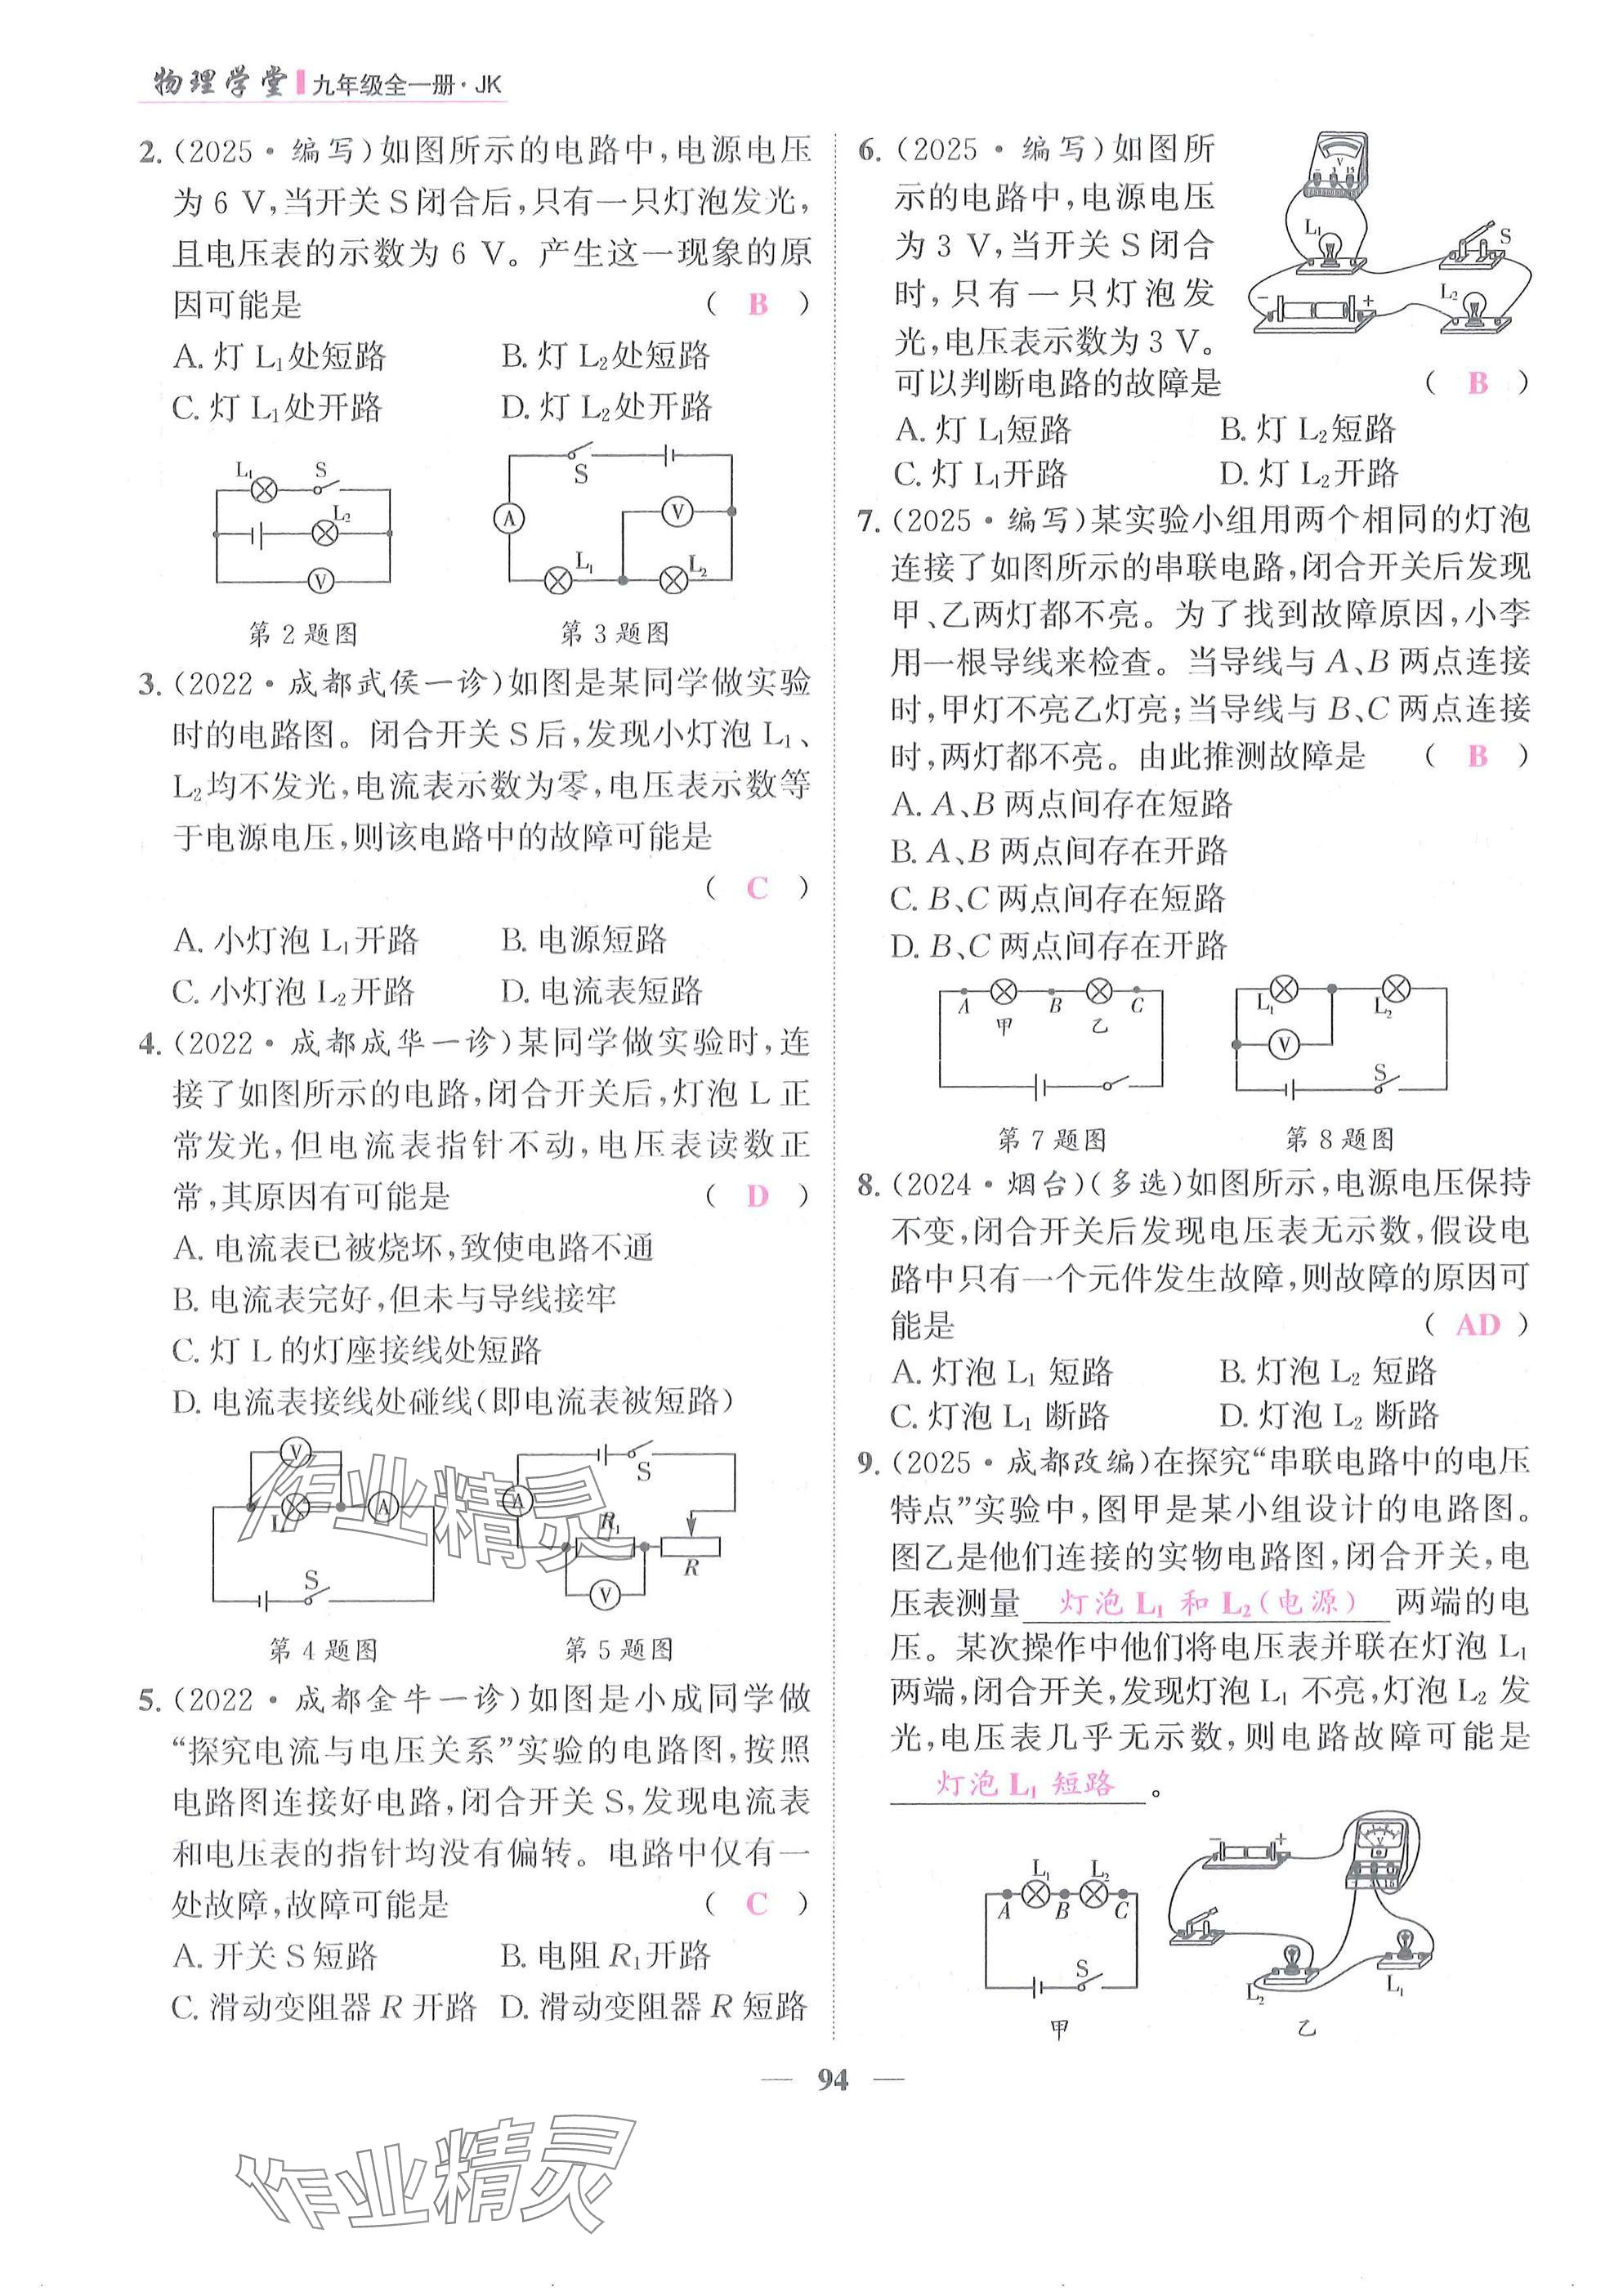 物理学堂 九年级全一册·JK
2.(2025·编写)如图所示的电路中,电源电压
为6 V,当开关S闭合后,只有一只灯泡发光,
且电压表的示数为6 V。产生这一现象的原
因可能是 ( B )
A. 灯 L₁处短路 B. 灯 L₂处短路
C. 灯 L₁处开路 D. 灯 L₂处开路
L₁ S L₂ V
S A V L₁ L₂
第2题图 第3题图
3.(2022·成都武侯一诊)如图是某同学做实验
时的电路图。闭合开关S后,发现小灯泡L₁、
L₂均不发光,电流表示数为零,电压表示数等
于电源电压,则该电路中的故障可能是
( C )
A. 小灯泡 L₁开路 B. 电源短路
C. 小灯泡 L₂开路 D. 电流表短路
4.(2022·成都成华一诊)某同学做实验时,连
接了如图所示的电路,闭合开关后,灯泡L正
常发光,但电流表指针不动,电压表读数正
常,其原因有可能是 ( D )
A. 电流表已被烧坏,致使电路不通
B. 电流表完好,但未与导线接牢
C. 灯L的灯座接线处短路
D. 电流表接线处碰线(即电流表被短路)
V L A S
S A R₁ R V
作业精灵
第4题图 第5题图
5.(2022·成都金牛一诊)如图是小成同学做
“探究电流与电压关系”实验的电路图,按照
电路图连接好电路,闭合开关S,发现电流表
和电压表的指针均没有偏转。电路中仅有一
处故障,故障可能是 ( C )
A. 开关S短路 B. 电阻R₁开路
C. 滑动变阻器R开路 D. 滑动变阻器R短路
6.(2025·编写)如图所
示的电路中,电源电压
为3 V,当开关S闭合
时,只有一只灯泡发
光,电压表示数为3 V。
可以判断电路的故障是 ( B )
V - 3 15 L₁ S - + L₂
A. 灯 L₁短路 B. 灯 L₂短路
C. 灯 L₁开路 D. 灯 L₂开路
7.(2025·编写)某实验小组用两个相同的灯泡
连接了如图所示的串联电路,闭合开关后发现
甲、乙两灯都不亮。为了找到故障原因,小李
用一根导线来检查。当导线与A、B两点连接
时,甲灯不亮乙灯亮;当导线与B、C两点连接
时,两灯都不亮。由此推测故障是 ( B )
A. A、B两点间存在短路
B. A、B两点间存在开路
C. B、C两点间存在短路
D. B、C两点间存在开路
A 甲 B 乙 C
L₁ L₂ V S
第7题图 第8题图
8.(2024·烟台)(多选)如图所示,电源电压保持
不变,闭合开关后发现电压表无示数,假设电
路中只有一个元件发生故障,则故障的原因可
能是 ( AD )
A. 灯泡 L₁ 短路 B. 灯泡 L₂ 短路
C. 灯泡 L₁ 断路 D. 灯泡 L₂ 断路
9.(2025·成都改编)在探究“串联电路中的电压
特点”实验中,图甲是某小组设计的电路图。
图乙是他们连接的实物电路图,闭合开关,电
压表测量 灯泡 L₁ 和 L₂(电源) 两端的电
压。某次操作中他们将电压表并联在灯泡L₁
两端,闭合开关,发现灯泡L₁不亮,灯泡L₂发
光,电压表几乎无示数,则电路故障可能是
灯泡 L₁ 短路 。
L₁ L₂ A B C S
- + V L₂ L₁
甲 乙
— 94 —
作业精灵